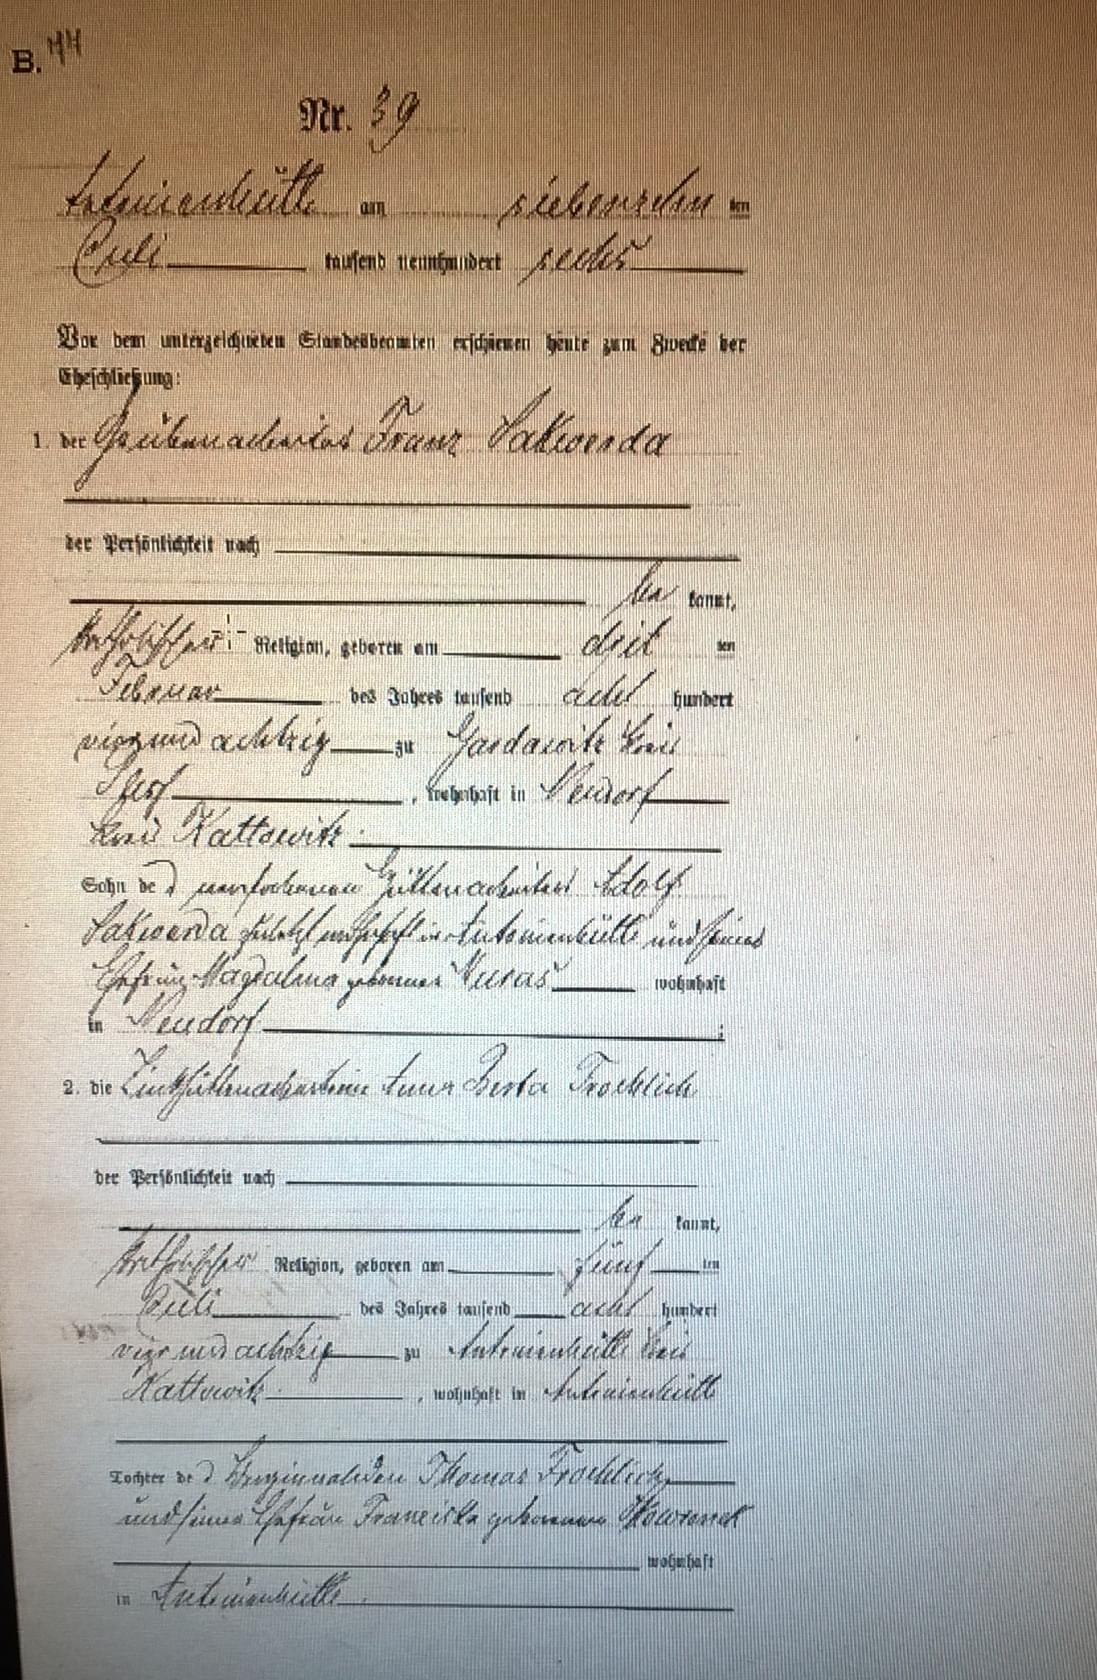 B. 44
Nr. 39
Antonienhütte am siebenzehn ten
Juli tausend neunhundert sechs
Vor dem unterzeichneten Standesbeamten erschienen heute zum Zwecke der
Eheschließung:
1. der Grubenarbeiter Franz Sakwerda
der Persönlichkeit nach
be kannt,
katholischer Religion, geboren am drit ten
Februar des Jahres tausend acht hundert
vierundachtzig zu Gardawitz Kreis
Pless, wohnhaft in Neudorf
Kreis Kattowitz
Sohn des verstorbenen Hüttenarbeiters Adolf
Sakwerda zuletzt wohnhaft in Antonienhütte und seiner
Ehefrau Magdalena geborenen wohnhaft
in Neudorf ;
2. die Zinkhüttenarbeiterin Anna Berta Froehlich
der Persönlichkeit nach
be kannt,
katholischer Religion, geboren am fünf ten
Juli des Jahres tausend acht hundert
vierundachtzig zu Antonienhütte Kreis
Kattowitz, wohnhaft in Antonienhütte
Tochter des Berginvaliden Thomas Froehlich
und seiner Ehefrau Franciska geborenen
wohnhaft
in Antonienhütte